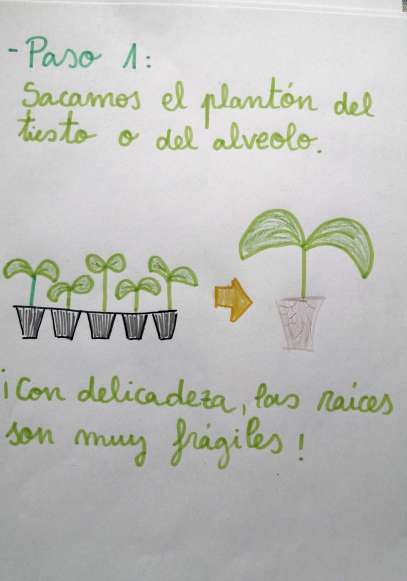 - Paso 1:
Sacamos el plantón del
tiesto o del alveolo.
¡Con delicadeza, las raíces
son muy frágiles!